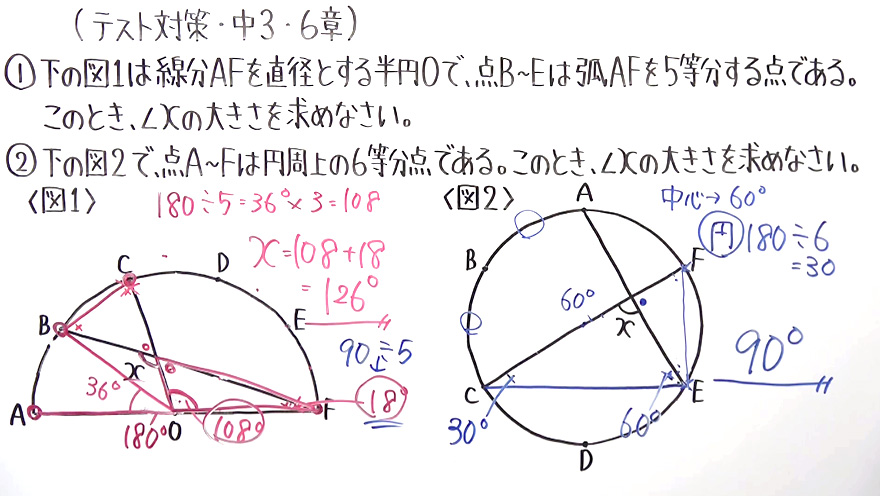 (テスト対策・中3・6章)
①下の図1は線分AFを直径とする半円Oで、点B~Eは弧AFを5等分する点である。
このとき、∠xの大きさを求めなさい。
②下の図2で、点A~Fは円周上の6等分点である。このとき、∠xの大きさを求めなさい。
〈図1〉
180÷5=36°×3=108
x=108+18
=126°
C
D
B
E
x
36°
A
180°
O
108°
F
90÷5
18°
〈図2〉
A
中心→60°
円 180÷6
=30
B
F
60°
x
90°
C
E
30°
60°
D